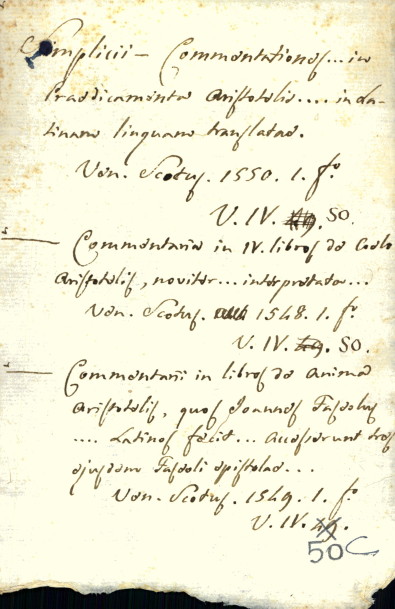 Simplicii — Commentationes... in
Praedicamenta Aristotelis.... in La-
tinam linguam translatae.
Ven. Scotus. 1550. 1. fo
V. IV. 50.
Commentaria in IV. libros de Coelo
Aristotelis, noviter... interpretata...
Ven. Scotus. 1548. 1. fo
V. IV. 49. 50.
Commentarii in libros de Anima
Aristotelis, quos Joannes Faseolus
.... Latinos fecit... Accesserunt tres
ejusdem Faseoli epistolae...
Ven. Scotus. 1549. 1. fo
V. IV. 49.
50 C